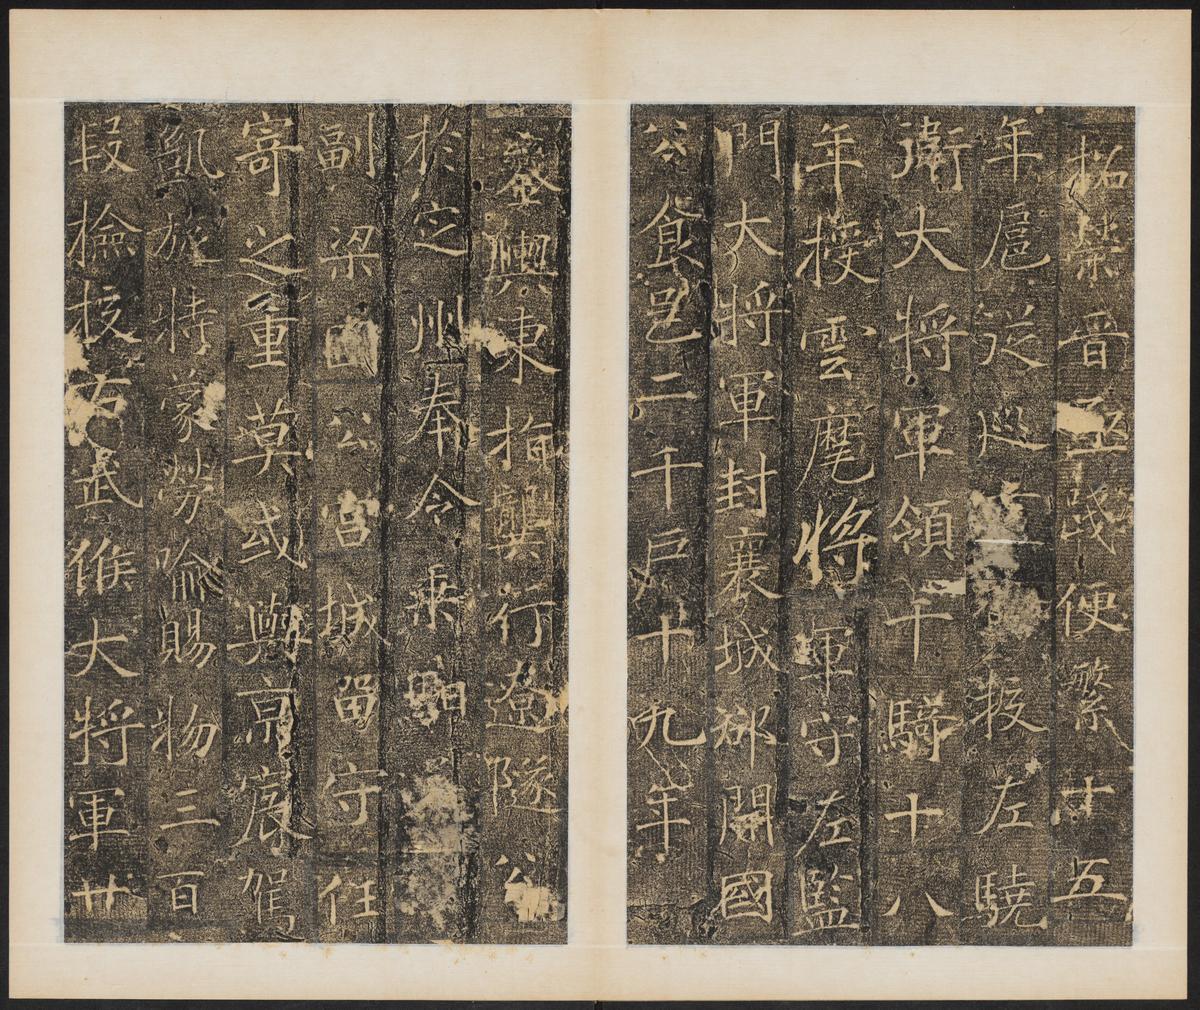 柝禁晉亟踐便繁十五
年扈從巡授左驍
衛大將軍領千騎十八
年授雲麾將軍守左監
門大將軍封襄城郡開國
公食邑二千戶十九年
鑾輿東指龔行遼隧公
於定州奉令乘馹
副梁國公宮城留守任
寄之重莫或與京宸駕
凱旋特蒙勞喻賜物三百
段檢挍右武候大將軍廿